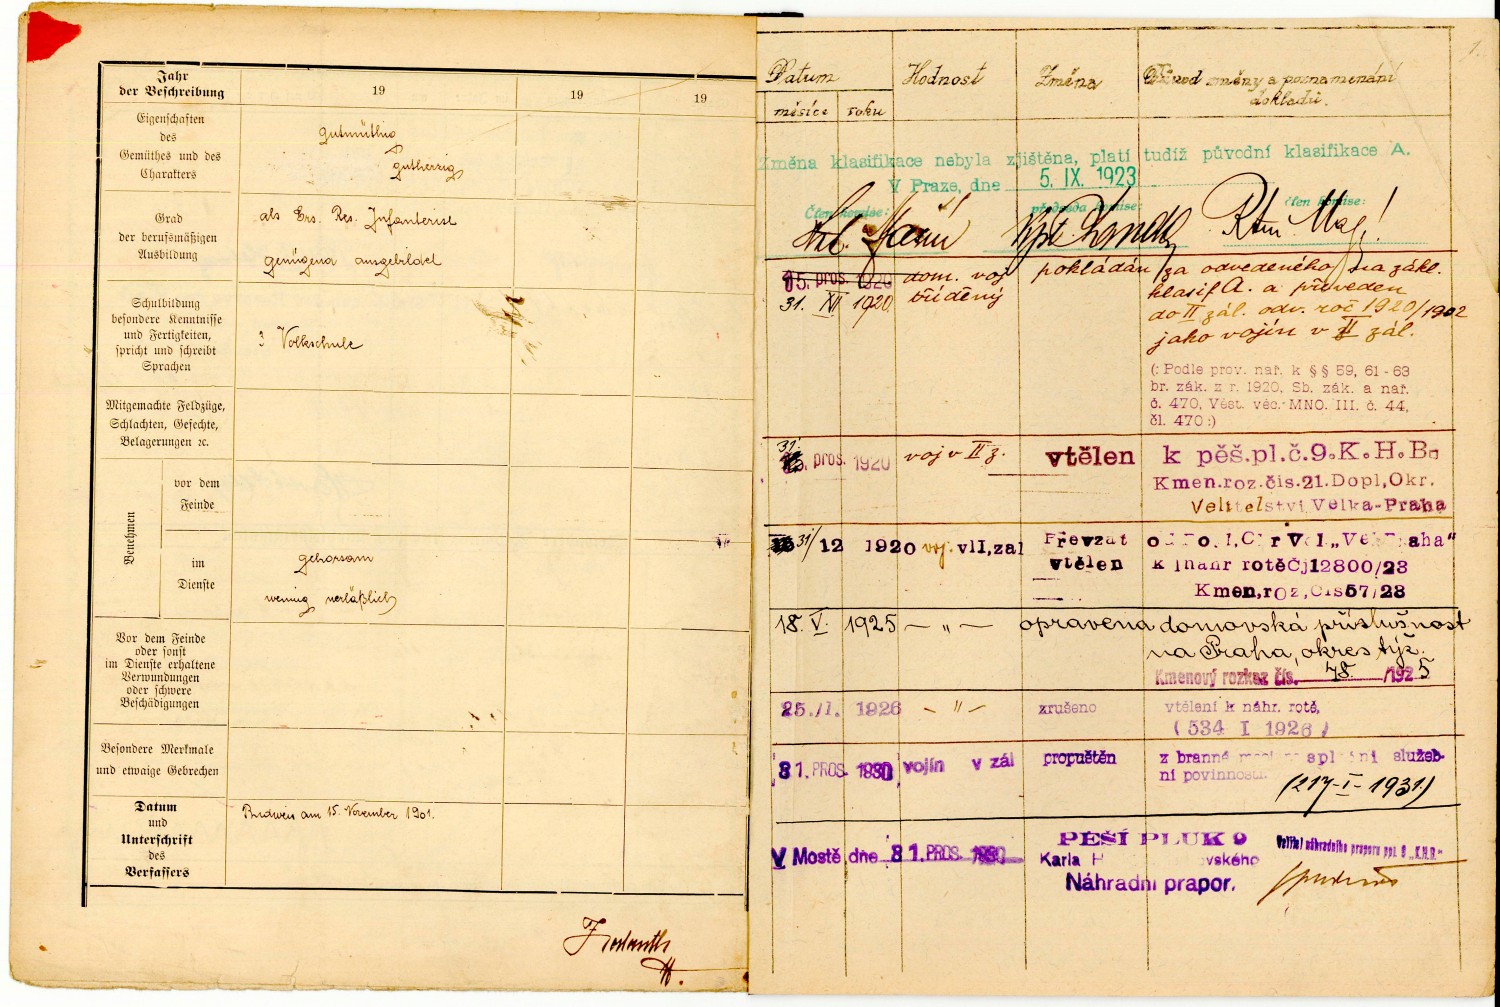 Jahr
der Beschreibung
19
19
19
Eigenschaften
des
Gemüthes und des
Charakters
gutmüthig
gutherzig
Grad
der berufsmäßigen
Ausbildung
als Ers. Res. Infanterist
genügend ausgebildet
Schulbildung
besondere Kenntnisse
und Fertigkeiten,
spricht und schreibt
Sprachen
3 Volkschule
Mitgemachte Feldzüge,
Schlachten, Gefechte,
Belagerungen ꝛc.
Benehmen
vor dem
Feinde
im
Dienste
gehorsam
wenig verläßlich
Vor dem Feinde
oder sonst
im Dienste erhaltene
Verwundungen
oder schwere
Beschädigungen
Besondere Merkmale
und etwaige Gebrechen
Datum
und
Unterschrift
des
Verfassers
Budweis am 15. November 1901.
1.
Datum
Hodnost
Změna
Důvod změny a poznamenání
dokladů.
měsíce
roku
Změna klasifikace nebyla zjištěna, platí tudíž původní klasifikace A.
V Praze, dne 5. IX. 1923
Člen komise:
předseda komise:
člen komise:
15. pros. 1920
31. XII 1920.
dom. voj
tříděný
pokládán za odvedeného na zákl.
klasif A. a převeden
do II zál. odv. roč 1920/1902
jako vojín v II zál.
(: Podle prov. nař. k § § 59, 61 - 63
br. zák. z r. 1920, Sb. zák. a nař.
č. 470, Věst. věc. MNO. III. č. 44,
čl. 470 :)
31.
15. pros. 1920
voj v II z.
vtělen
k pěš.pl.č.9.K.H.B.
Kmen.roz.čis.21.Dopl,Okr.
Velitelství Velka-Praha
31/12 1920
voj. vII,zal
Převzat
vtělen
od Do l, O r Vel „Vel Praha"
k náhr rotě Čj12800/23
Kmen,roz,Čis57/23
18. V. 1925
— " —
opravena domovská příslušnost
na Praha, okres týž.
Kmenový rozkaz čís. 78. /1925
25./I. 1926
— " —
zrušeno
vtělení k náhr. rotě,
( 534 I 1926 )
31. PROS. 1930
vojín v zál
propuštěn
z branné moci splnění služeb-
ní povinnosti
(217-I-1931)
V Mostě, dne 31. PROS. 1930
PĚŠÍ PLUK 9
Karla H vského
Náhradní prapor.
Velitel náhradního praporu ppl. 9 „K.H.B."